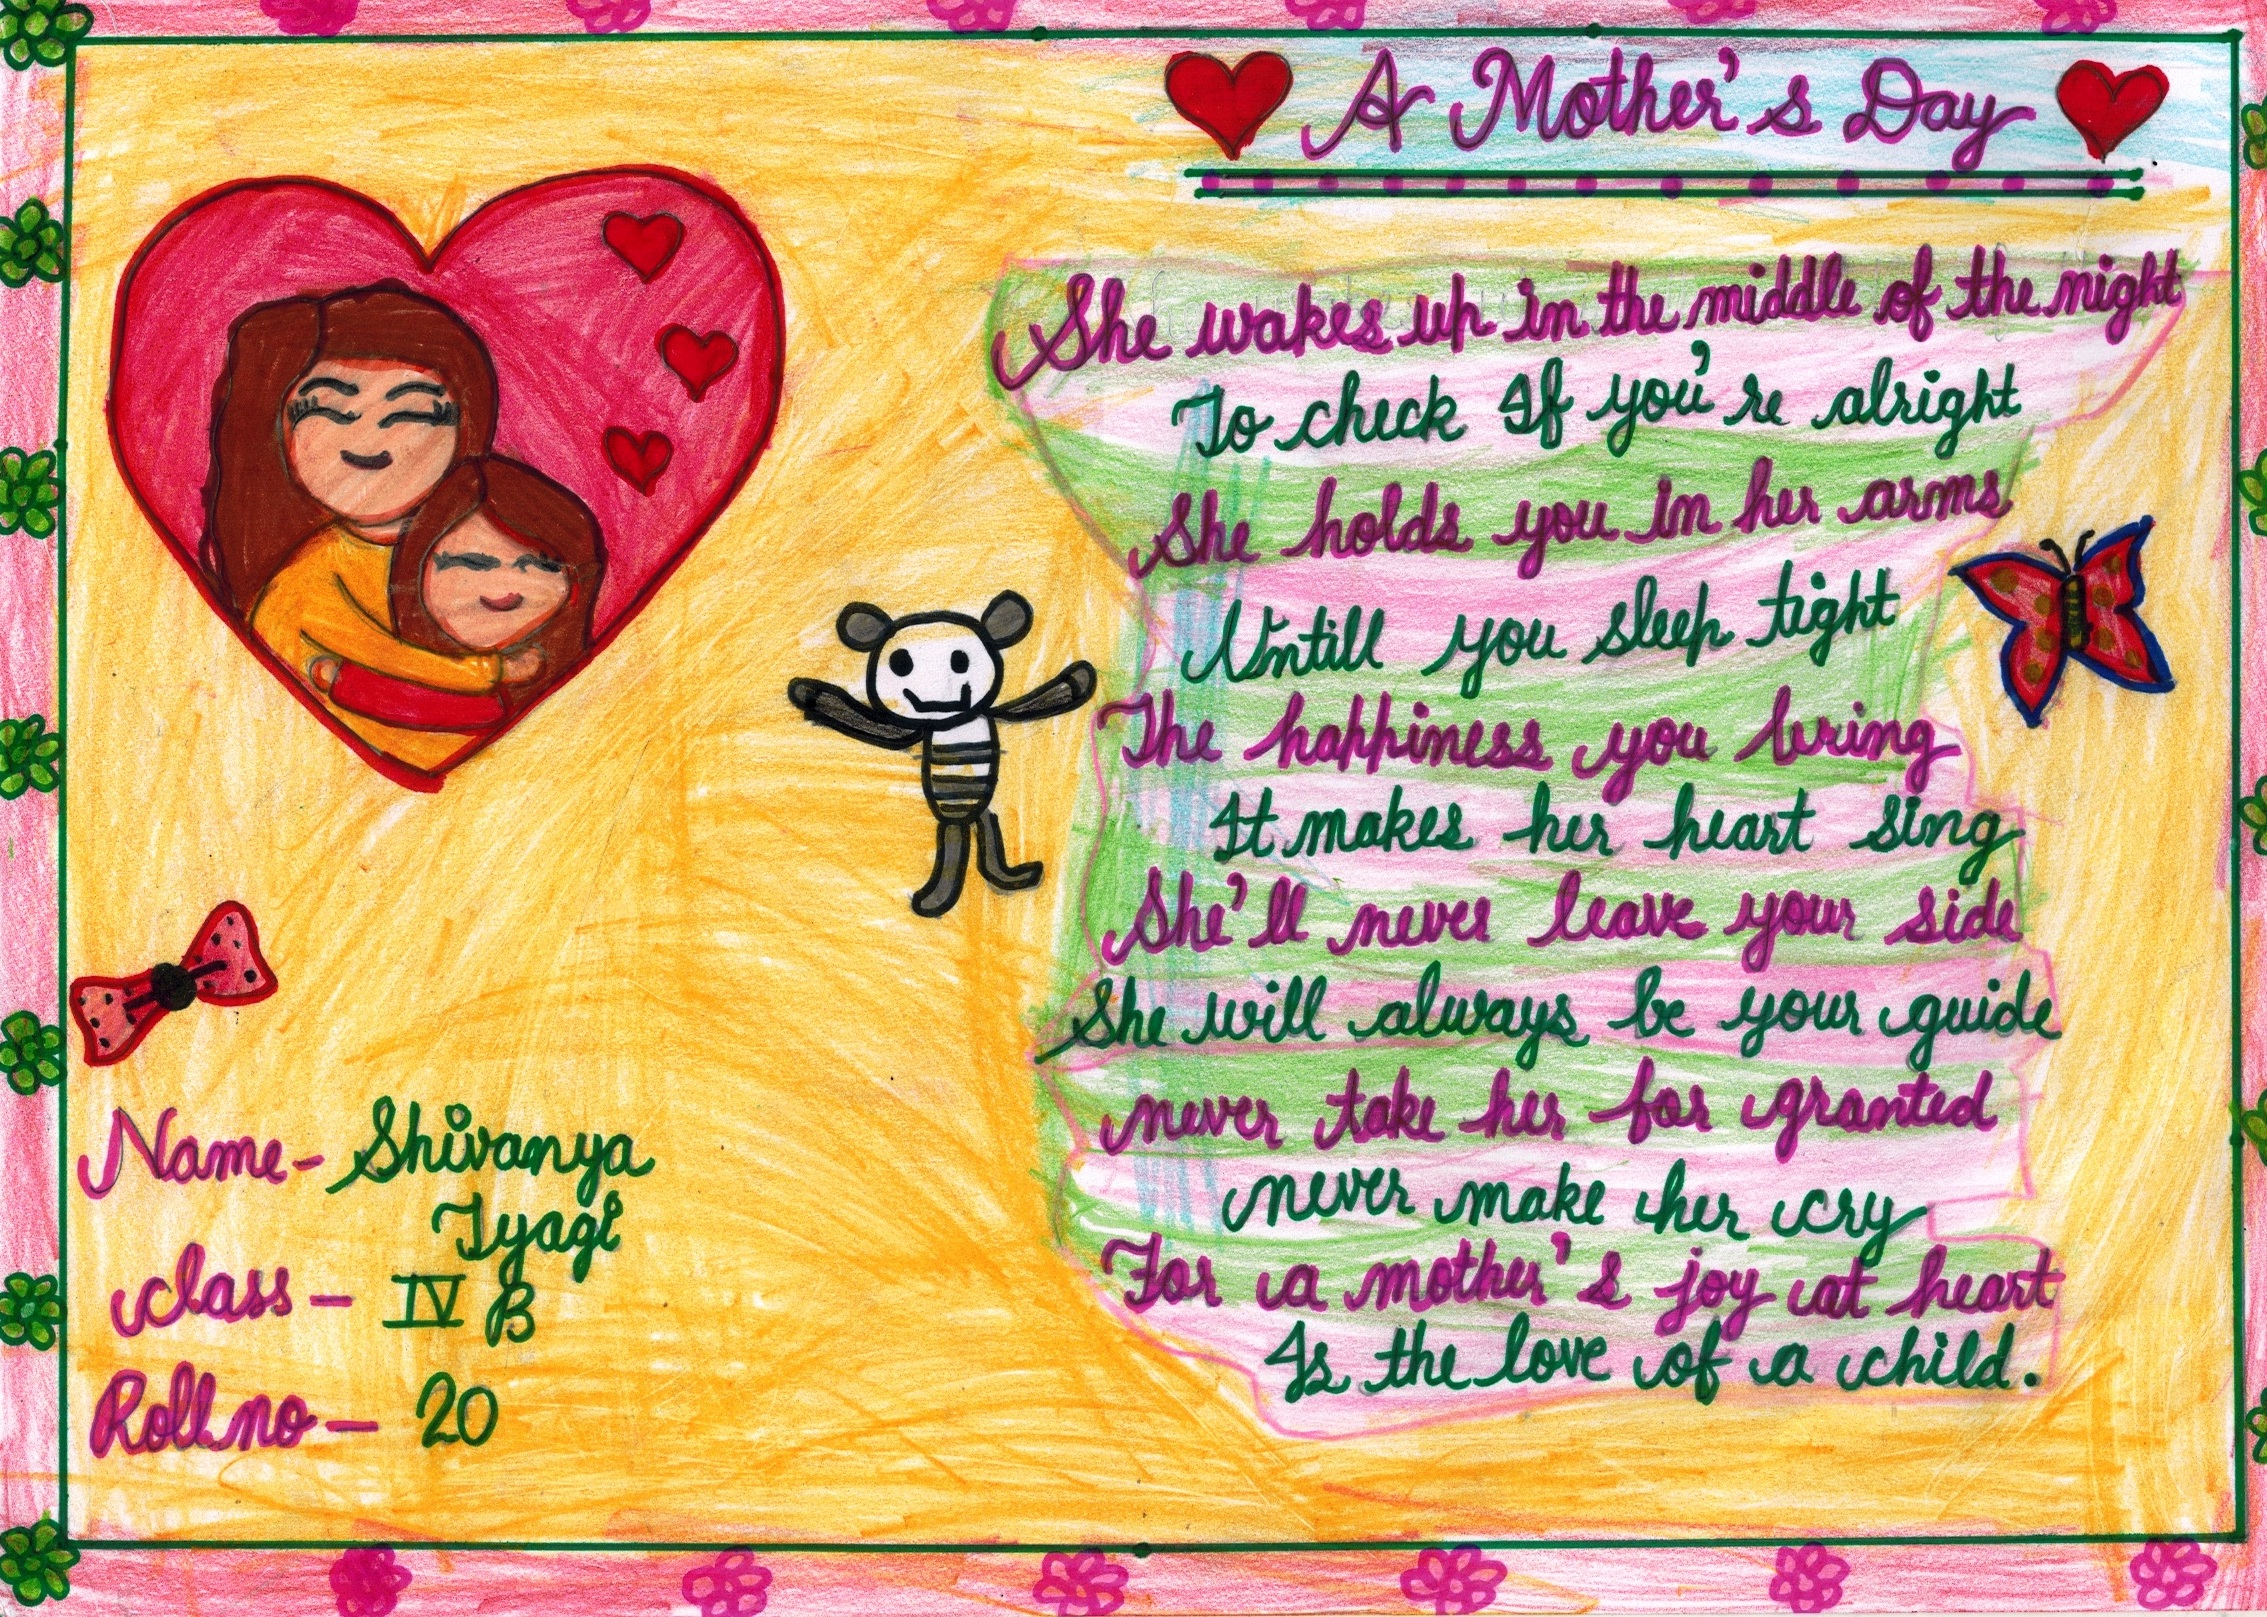 A Mother's Day
She wakes up in the middle of the night
To check If you're alright
She holds you in her arms
Untill you sleep tight
The happiness you bring
It makes her heart sing
She'll never leave your side
She will always be your guide
never take her for granted
never make her cry
For a mother's joy at heart
Is the love of a child.
Name - Shivanya
Tyagi
class - IV B
Roll no - 20